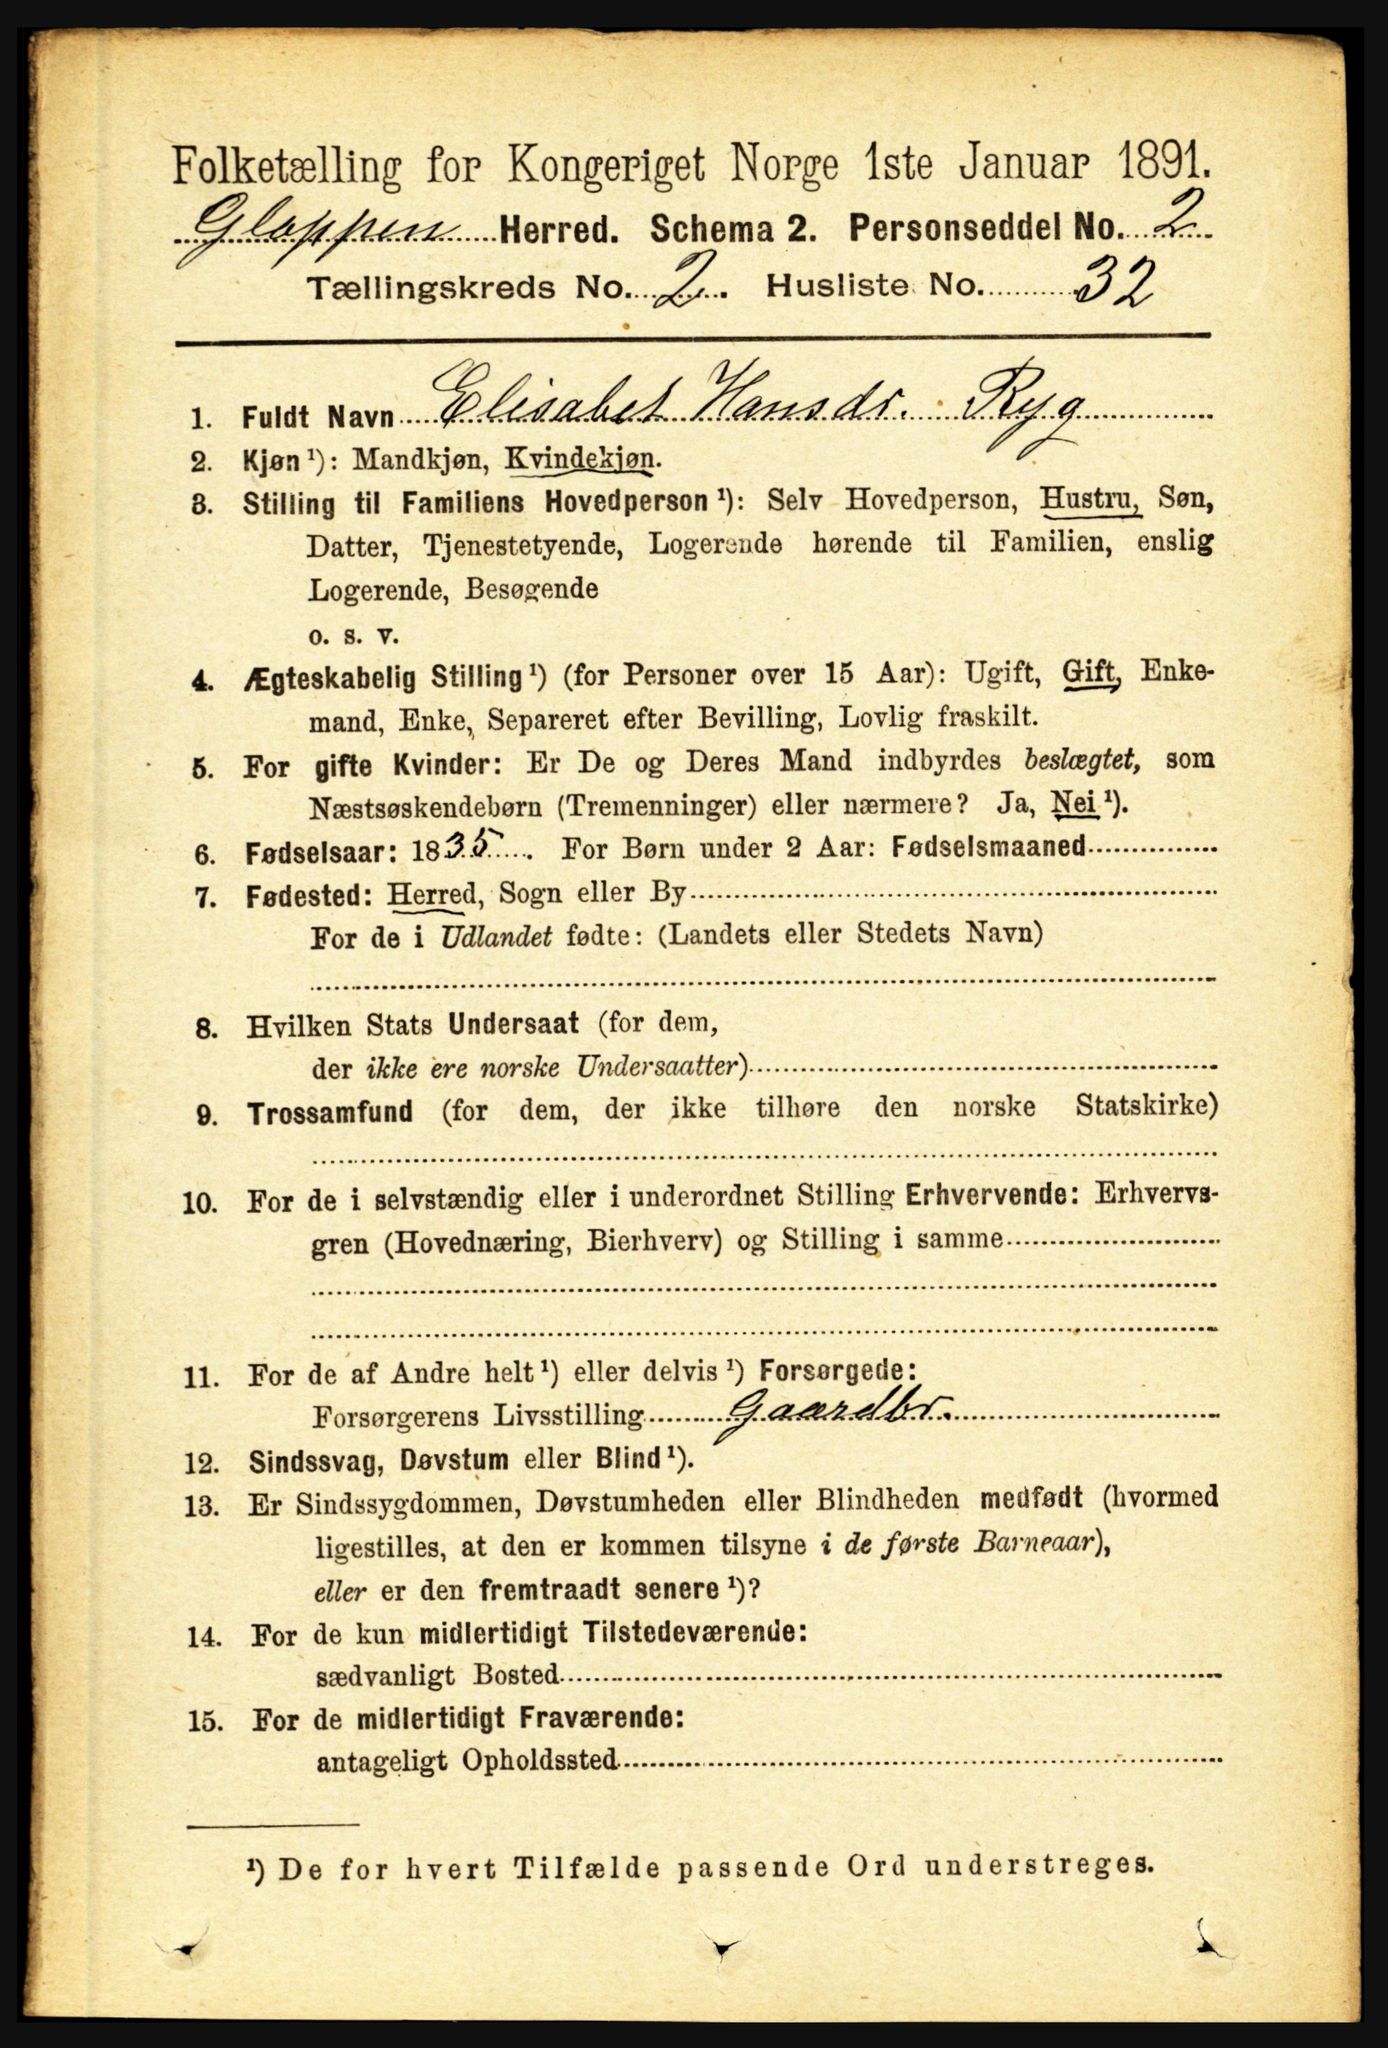 Folketælling for Kongeriget Norge 1ste Januar 1891.
Gloppen Herred. Schema 2. Personseddel No. 2
Tællingskreds No. 2. Husliste No. 32
1. Fuldt Navn Elisabet Hansdr. Ryg
2. Kjøn¹): Mandkjøn, Kvindekjøn.
3. Stilling til Familiens Hovedperson¹): Selv Hovedperson, Hustru, Søn,
Datter, Tjenestetyende, Logerende hørende til Familien, enslig
Logerende, Besøgende
o. s. v.
4. Ægteskabelig Stilling¹) (for Personer over 15 Aar): Ugift, Gift, Enke-
mand, Enke, Separeret efter Bevilling, Lovlig fraskilt.
5. For gifte Kvinder: Er De og Deres Mand indbyrdes beslægtet, som
Næstsøskendebørn (Tremenninger) eller nærmere? Ja, Nei¹).
6. Fødselsaar: 1835. For Børn under 2 Aar: Fødselsmaaned
7. Fødested: Herred, Sogn eller By
For de i Udlandet fødte: (Landets eller Stedets Navn)
8. Hvilken Stats Undersaat (for dem,
der ikke ere norske Undersaatter)
9. Trossamfund (for dem, der ikke tilhøre den norske Statskirke)
10. For de i selvstændig eller i underordnet Stilling Erhvervende: Erhvervs-
gren (Hovednæring, Bierhverv) og Stilling i samme
11. For de af Andre helt¹) eller delvis¹) Forsørgede:
Forsørgerens Livsstilling Gaardbr.
12. Sindssvag, Døvstum eller Blind¹).
13. Er Sindssygdommen, Døvstumheden eller Blindheden medfødt (hvormed
ligestilles, at den er kommen tilsyne i de første Barneaar),
eller er den fremtraadt senere¹)?
14. For de kun midlertidigt Tilstedeværende:
sædvanligt Bosted
15. For de midlertidigt Fraværende:
antageligt Opholdssted
¹) De for hvert Tilfælde passende Ord understreges.